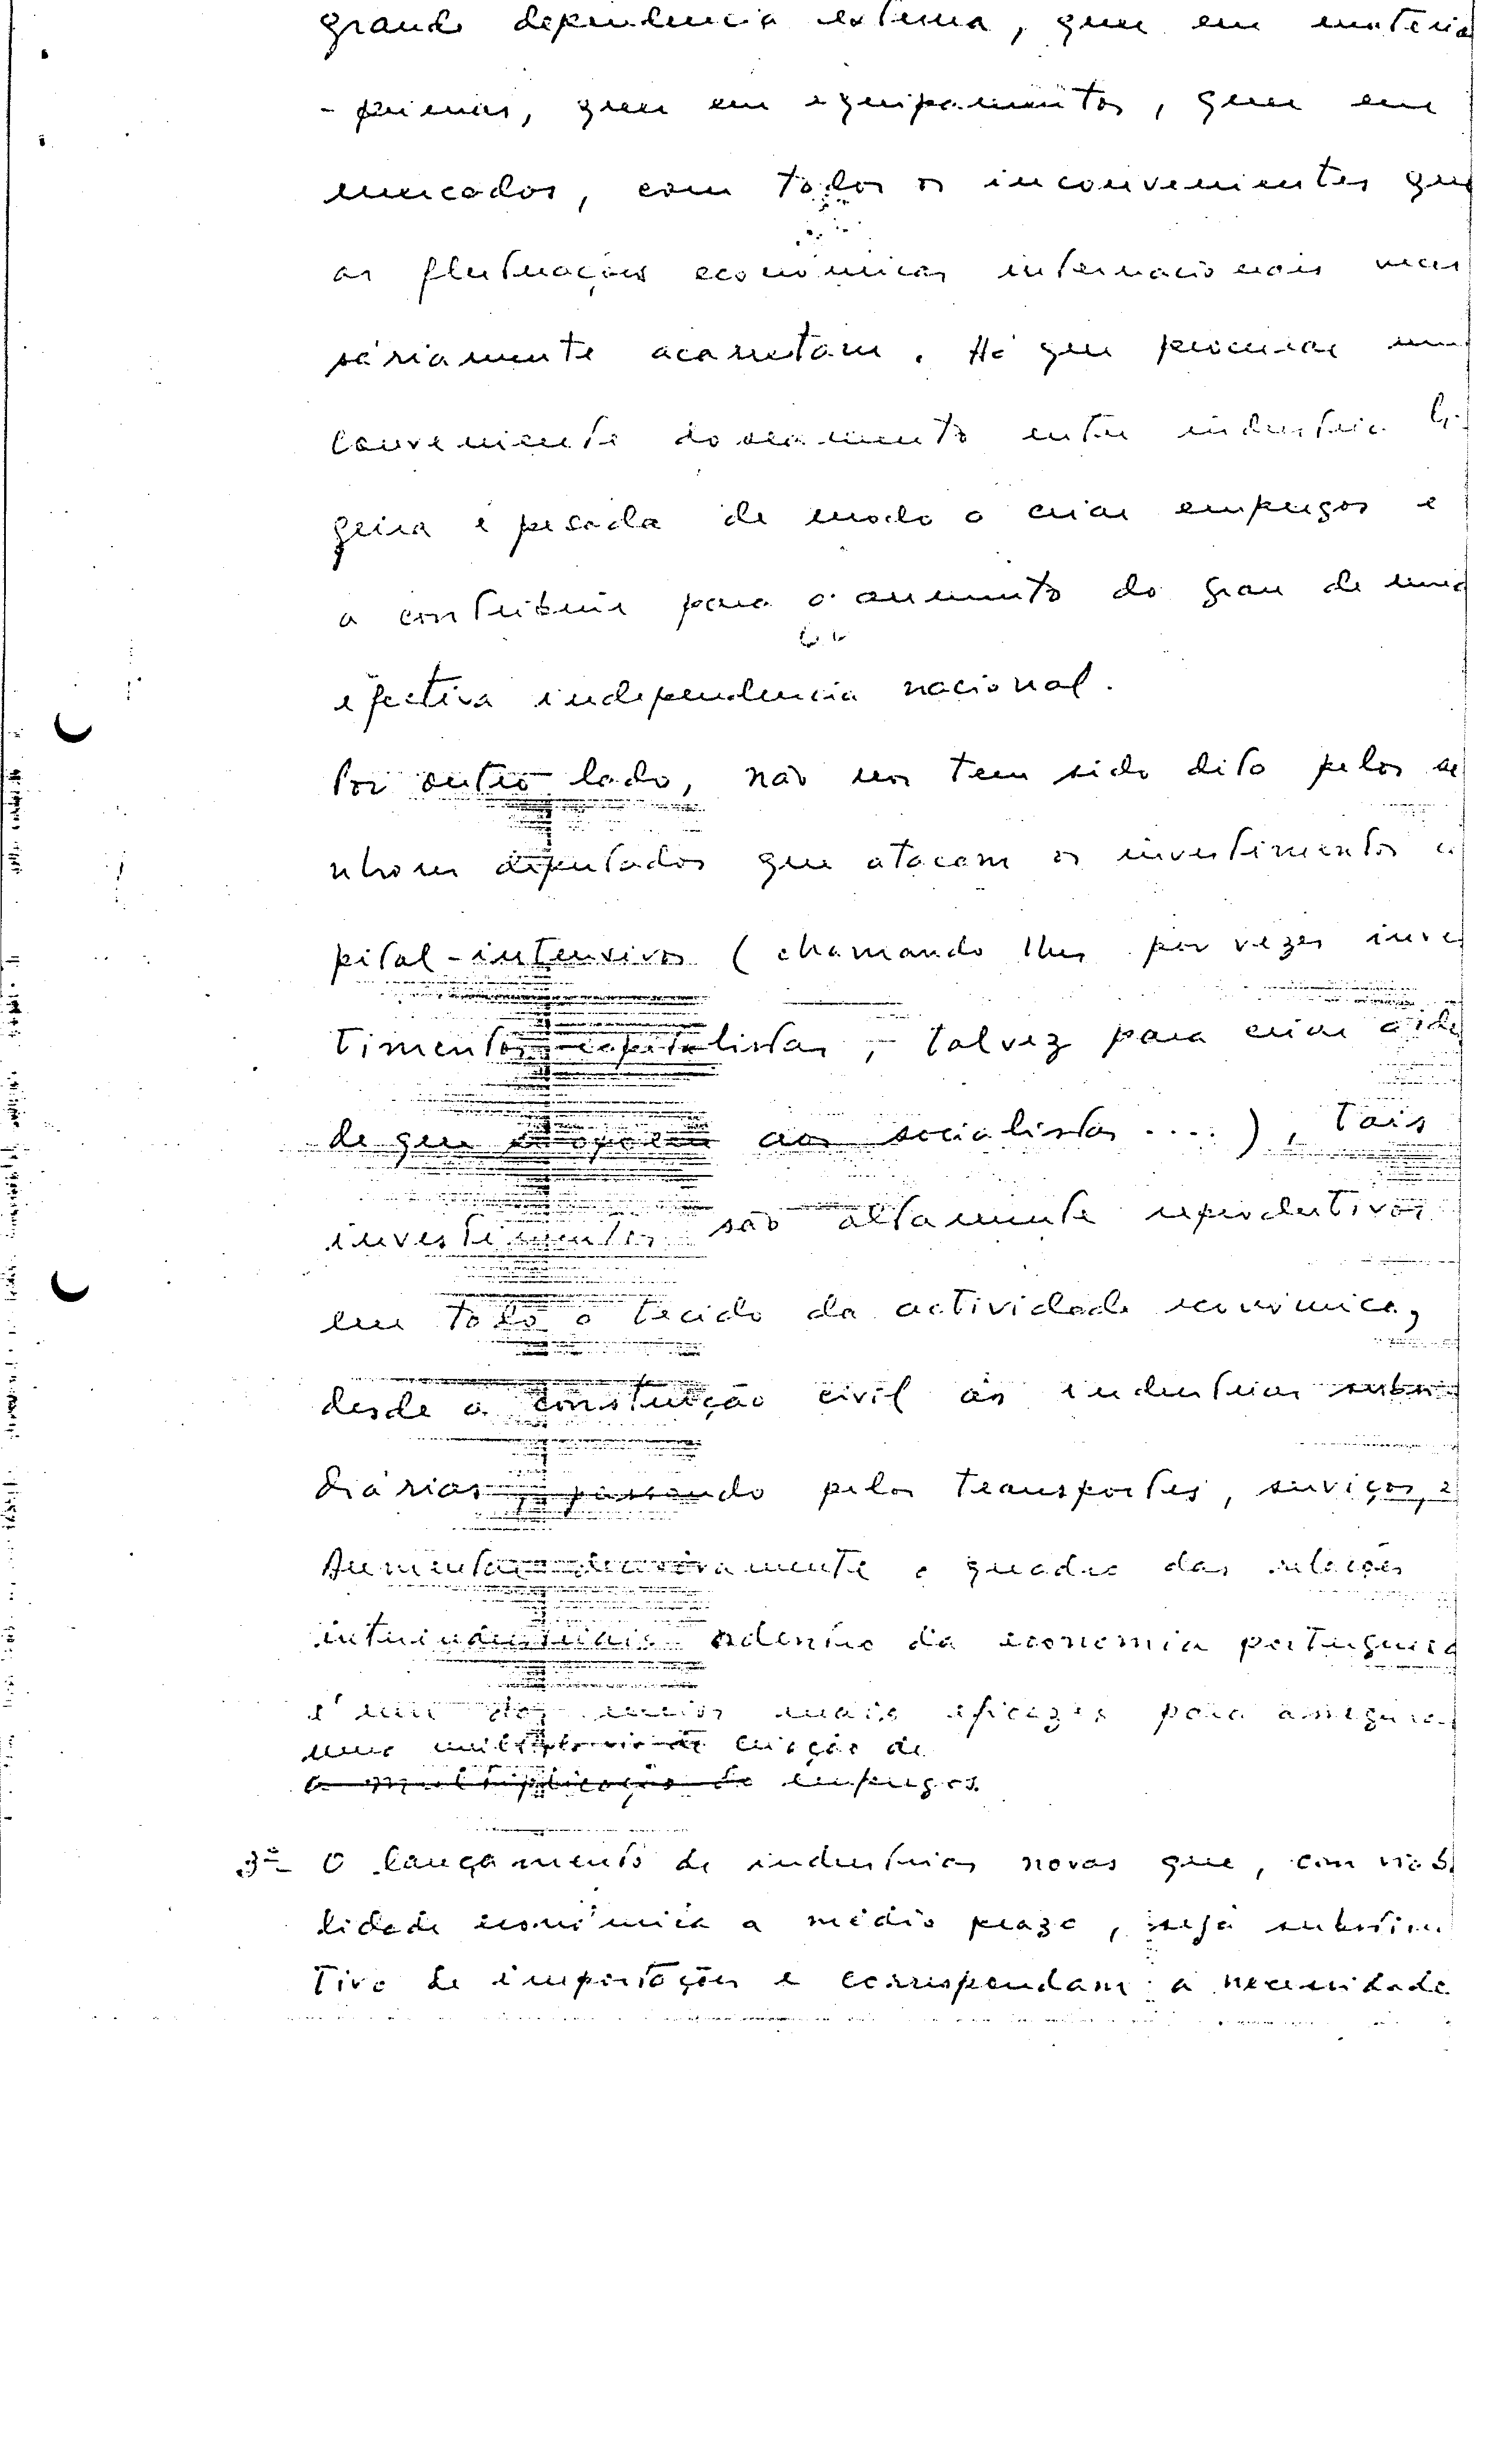 grande dependencia externa, quer em materia
- primas, quer em equipamentos, quer em
mercados, com todos os inconvenientes que
as flutuações económicas internacionais neces
sáriamente acarretam. Há que procurar um
conveniente doseamento entre industria li
geira e pesada de modo a criar empregos e
a contribuir para o aumento do grau de uma
efectiva independencia nacional.
Por outro lado, não nos tem sido dito pelos se
nhores deputados que atacam os investimentos ca
pital-intensivos (chamando lhes por vezes inves
timentos capitalistas, talvez para criar a ide
de que se opõem aos socialistas ....), tais
investimentos são altamente reprodutivos
em todo o tecido da actividade económica,
desde a construção civil às industrias subsi
diárias, passando pelos transportes, serviços,
Aumentar decisivamente o quadro das relações
interindustriais adentro da economia portuguesa
é um dos meios mais eficazes para assegurar
uma criação de
a multiplicação de empregos.
3º- O lançamento de industrias novas que, com viabi
lidade económica a médio prazo, seja substitu
tivo de importações e correspondam a necessidade